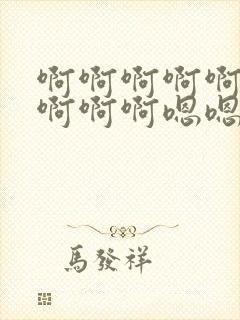 啊啊啊啊啊
啊啊啊嗯嗯
馬發祥